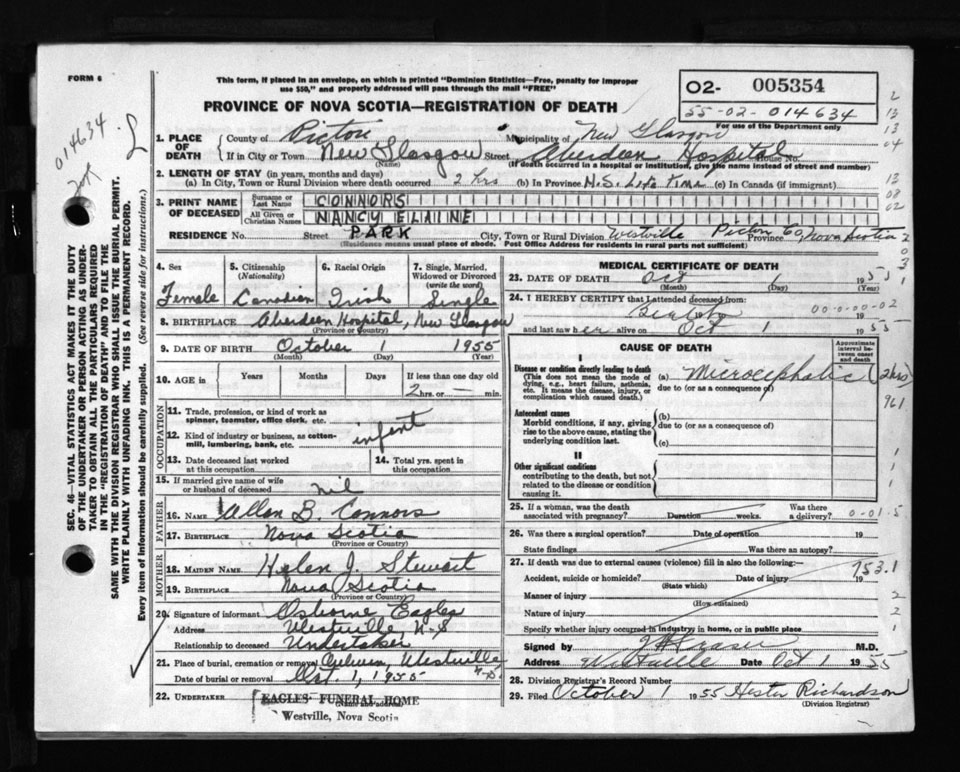 FORM 6
This form, if placed in an envelope, on which is printed "Dominion Statistics—Free, penalty for improper
use $50," and properly addressed will pass through the mail "FREE"
PROVINCE OF NOVA SCOTIA—REGISTRATION OF DEATH
02- 005354
55-02-014634
For use of the Department only
014634
SEC. 46—VITAL STATISTICS ACT MAKES IT THE DUTY
OF THE UNDERTAKER OR PERSON ACTING AS UNDER-
TAKER TO OBTAIN ALL THE PARTICULARS REQUIRED
IN THE "REGISTRATION OF DEATH" AND TO FILE THE
SAME WITH THE DIVISION REGISTRAR WHO SHALL ISSUE THE BURIAL PERMIT.
WRITE PLAINLY WITH UNFADING INK. THIS IS A PERMANENT RECORD.
Every item of information should be carefully supplied. (See reverse side for instructions.)
1. PLACE OF DEATH
County of Pictou Municipality of New Glasgow
If in City or Town New Glasgow Street Aberdeen Hospital House No.
(Name) (If death occurred in a hospital or institution, give its name instead of street and number)
2. LENGTH OF STAY (in years, months and days)
(a) In City, Town or Rural Division where death occurred 2 hrs (b) In Province N.S. Life Time (c) In Canada (if immigrant)
3. PRINT NAME OF DECEASED
Surname or Last Name CONNORS
All Given or Christian Names NANCY ELAINE
RESIDENCE No. Street PARK City, Town or Rural Division Westville Pictou Co, Province Nova Scotia
(Residence means usual place of abode. Post Office Address for residents in rural parts not sufficient)
4. Sex
Female
5. Citizenship (Nationality)
Canadian
6. Racial Origin
Irish
7. Single, Married, Widowed or Divorced (write the word)
Single
8. BIRTHPLACE Aberdeen Hospital, New Glasgow
(Province or Country)
9. DATE OF BIRTH October 1 1955
(Month) (Day) (Year)
10. AGE in Years Months Days If less than one day old
2 hrs. — min.
OCCUPATION
11. Trade, profession, or kind of work as spinner, teamster, office clerk, etc.
infant
12. Kind of industry or business, as cotton-mill, lumbering, bank, etc.
13. Date deceased last worked at this occupation
14. Total yrs. spent in this occupation
15. If married give name of wife or husband of deceased nil
FATHER
16. NAME Allan B. Connors
17. BIRTHPLACE Nova Scotia
(Province or Country)
MOTHER
18. MAIDEN NAME Helen J. Stewart
19. BIRTHPLACE Nova Scotia
(Province or Country)
20. Signature of informant Osborne Eagles
Address Westville N-S
Relationship to deceased Undertaker
21. Place of burial, cremation or removal Westville N-S
Date of burial or removal Oct. 1, 1955
22. UNDERTAKER EAGLES' FUNERAL HOME
(Name and address)
Westville, Nova Scotia
MEDICAL CERTIFICATE OF DEATH
23. DATE OF DEATH Oct 1 1955
(Month) (Day) (Year)
24. I HEREBY CERTIFY that I attended deceased from
00-0-00-02
19
and last saw her alive on Oct 1 1955
CAUSE OF DEATH
Approximate interval between onset and death
I
Disease or condition directly leading to death
(This does not mean the mode of dying, e.g., heart failure, asthenia, etc. It means the disease, injury, or complication which caused death.)
(a) Microcephalic (2 hrs)
due to (or as a consequence of)
961
Antecedent causes
Morbid conditions, if any, giving rise to the above cause, stating the underlying condition last.
(b)
due to (or as a consequence of)
(c)
II
Other significant conditions
contributing to the death, but not related to the disease or condition causing it.
25. If a woman, was the death associated with pregnancy? Duration weeks. Was there a delivery? 0-01-5
26. Was there a surgical operation? Date of operation 19
State findings Was there an autopsy?
27. If death was due to external causes (violence) fill in also the following:—
753.1
Accident, suicide or homicide? Date of injury 19
(State which)
Manner of injury
(How sustained)
Nature of injury
Specify whether injury occurred in industry, in home, or in public place
Signed by M.D.
Address Westville Date Oct 1 1955
28. Division Registrar's Record Number
29. Filed October 1 1955 Hester Richardson
(Division Registrar)